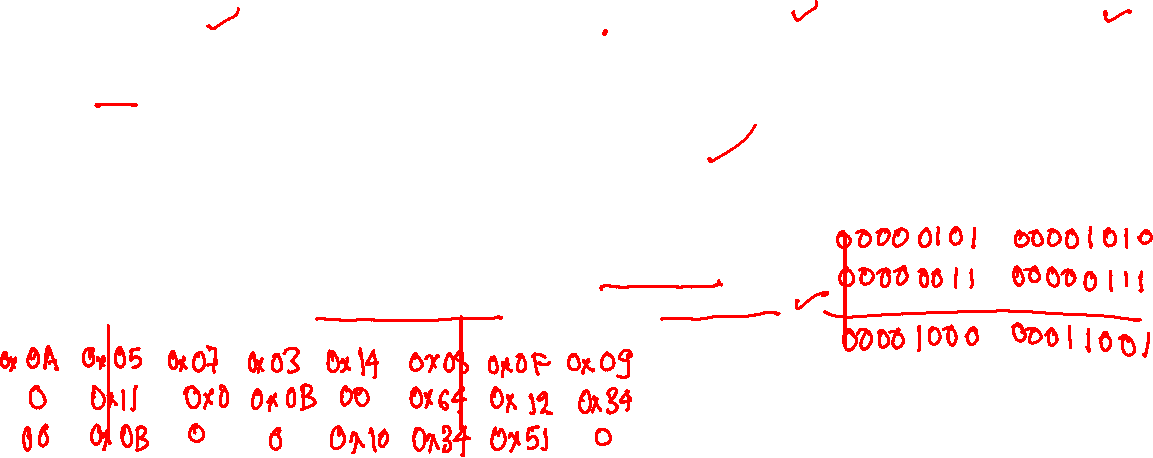 00000101 00001010
00000011 00000111
00001000 00011001
0x0A 0x05 0x07 0x03 0x14 0x08 0x0F 0x09
0 0x11 0x0 0x0B 00 0x64 0x12 0x34
00 0x0B 0 0 0x10 0x34 0x51 0